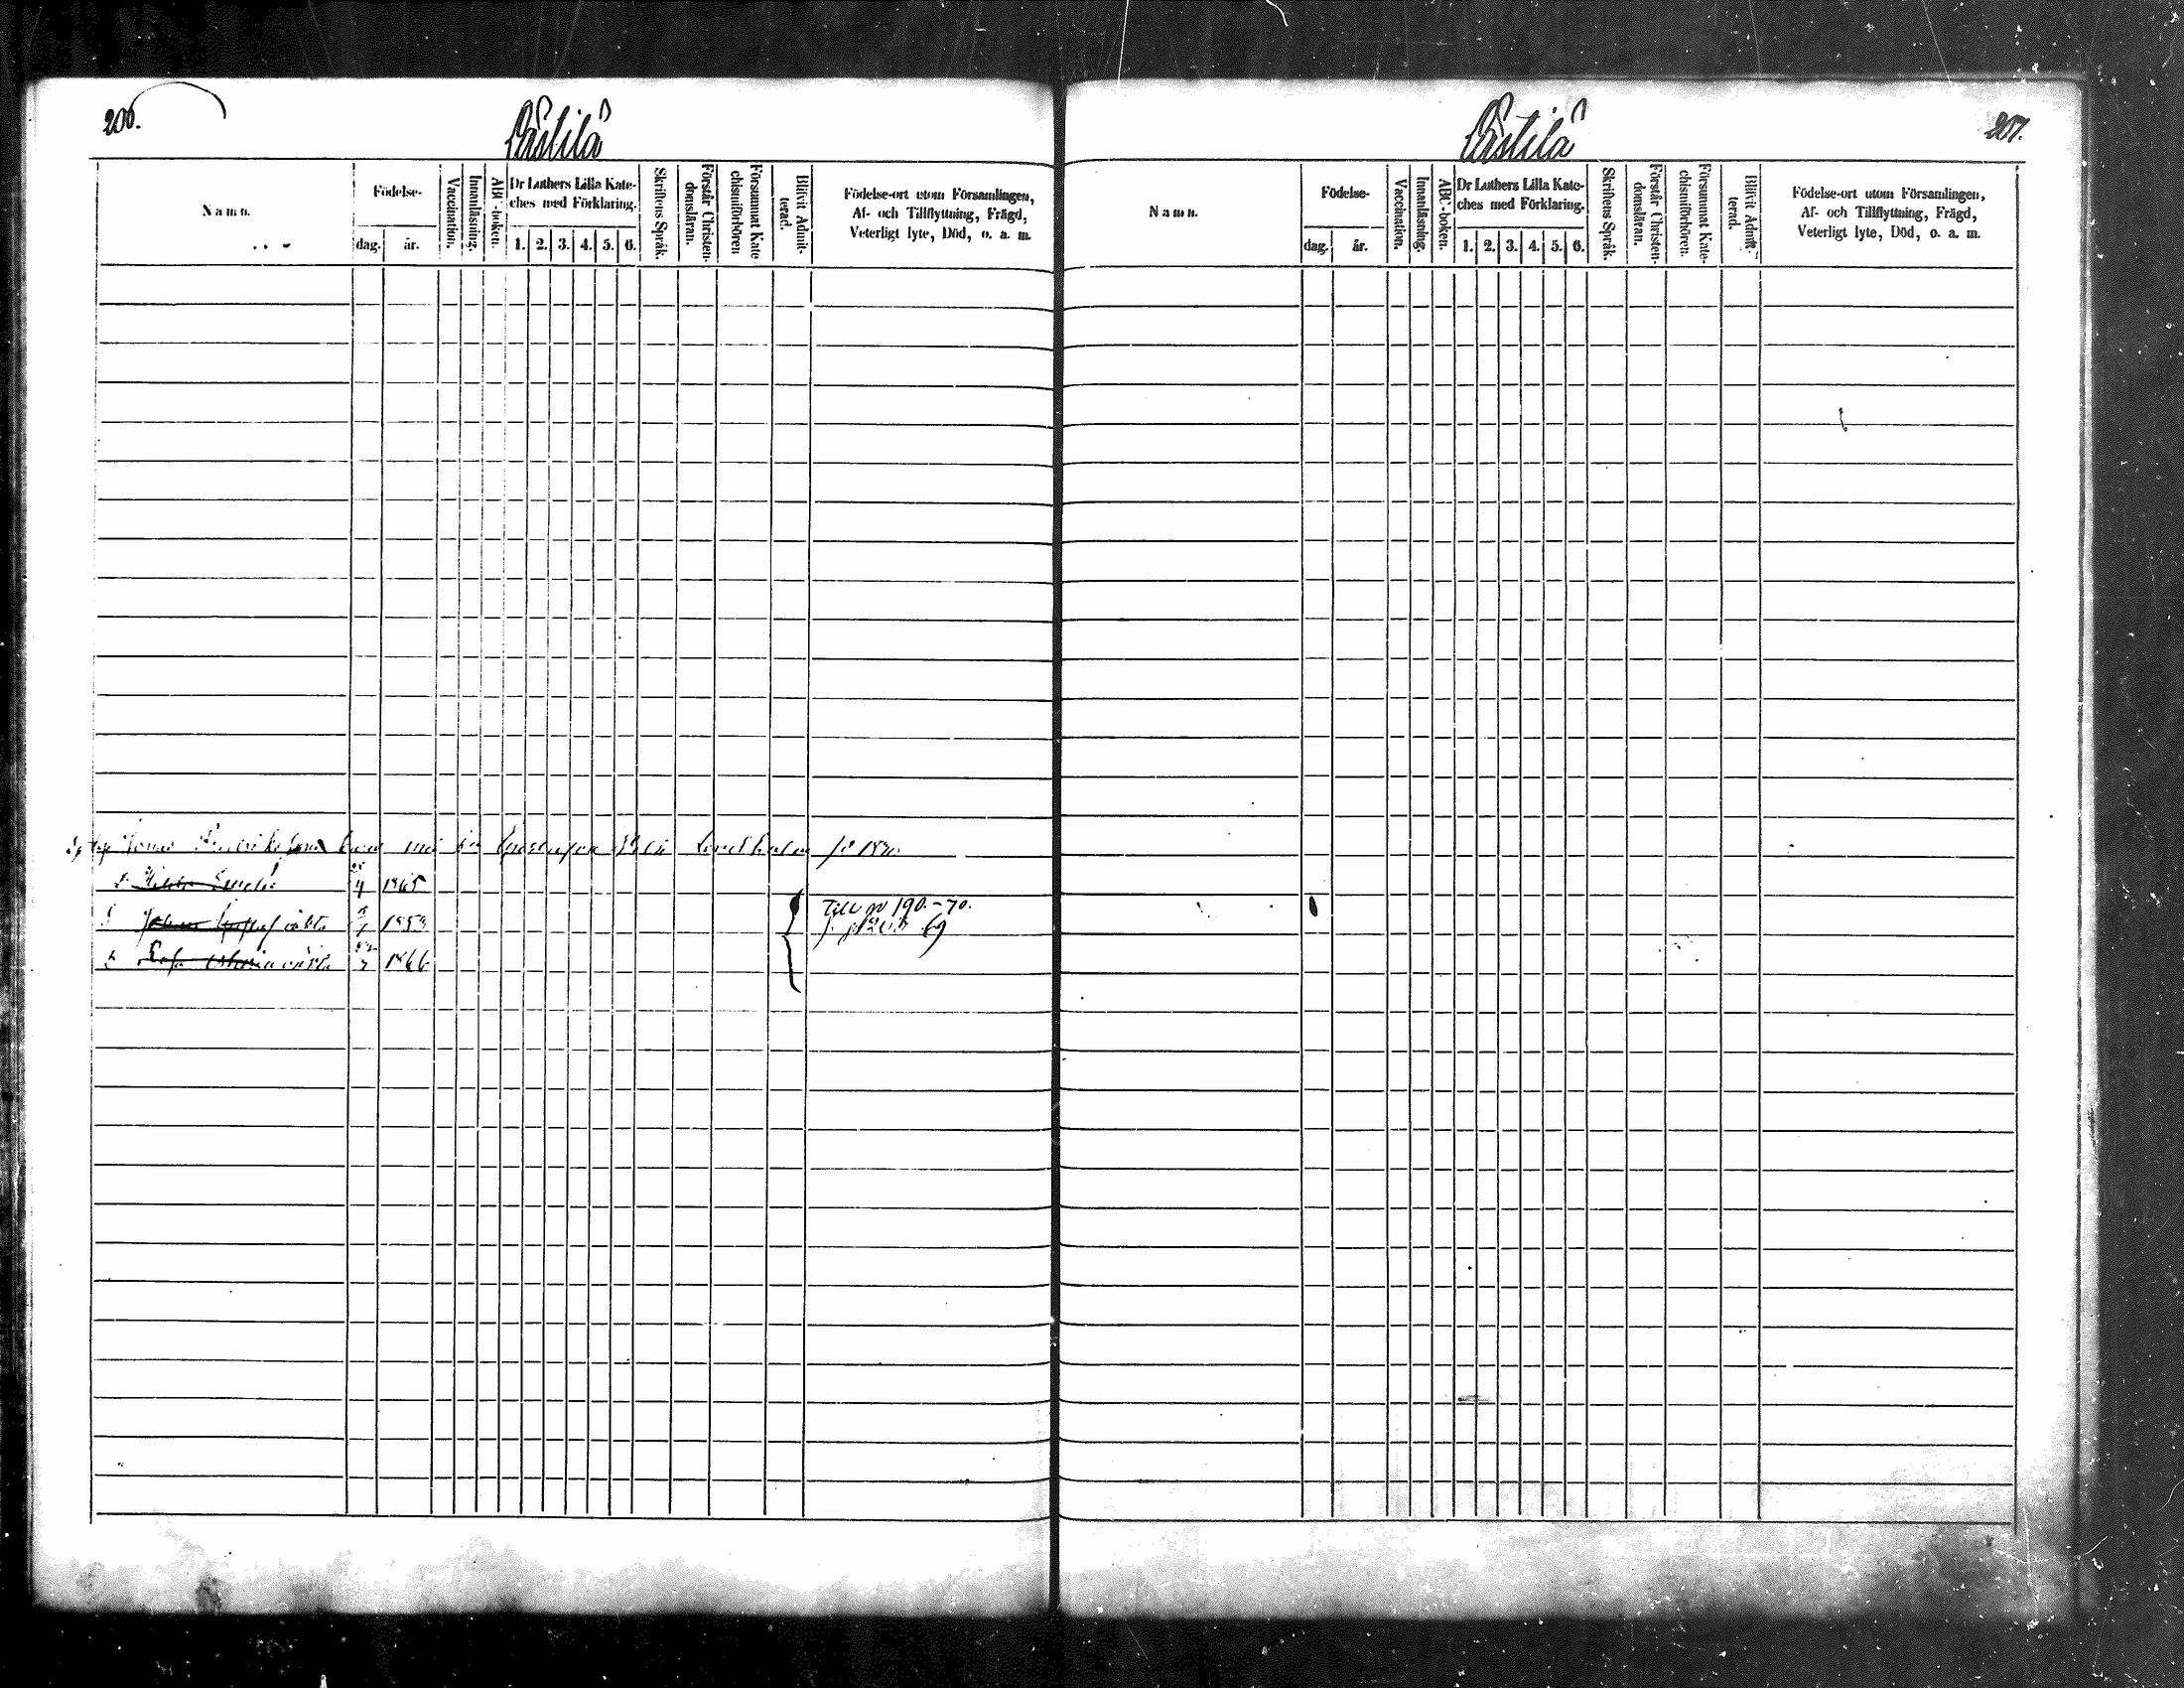 206.
Pästilä
Namn.
Födelse-
dag.
år.
Vaccination.
Innanläsning.
ABC-boken.
Dr Luthers Lilla Kate-
ches med Förklaring.
1. 2. 3. 4. 5. 6.
Skriftens Språk.
Förstår Christen-
domsläran.
Försummat Kate-
chismiförhören
Blifvit Admit-
terad.
Födelse-ort utom Församlingen,
Af- och Tillflyttning, Frägd,
Veterligt lyte, Död, o. a. m.
Jonas
1865
Till p 190.-70.
Johan Gustaf 1859
69
1866
Pästilä
207.
Namn.
Födelse-
dag.
år.
Vaccination.
Innanläsning.
ABC-boken.
Dr Luthers Lilla Kate-
ches med Förklaring.
1. 2. 3. 4. 5. 6.
Skriftens Språk.
Förstår Christen-
domsläran.
Försummat Kate-
chismiförhören.
Blifvit Admit-
terad.
Födelse-ort utom Församlingen,
Af- och Tillflyttning, Frägd,
Veterligt lyte, Död, o. a. m.